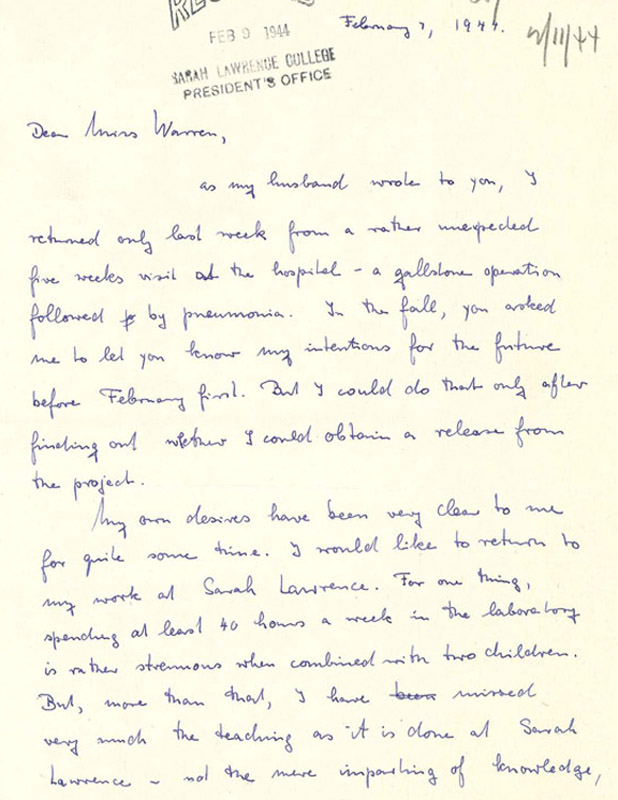 FEB 9 1944
February 7, 1944.
2/11/44
SARAH LAWRENCE COLLEGE
PRESIDENT'S OFFICE
Dear Miss Warren,
as my husband wrote to you, I
returned only last week from a rather unexpected
five weeks visit at the hospital - a gallstone operation
followed by pneumonia. In the fall, you asked
me to let you know my intentions for the future
before February first. But I could do that only after
finding out whether I could obtain a release from
the project.
My own desires have been very clear to me
for quite some time. I would like to return to
my work at Sarah Lawrence. For one thing,
spending at least 40 hours a week in the laboratory
is rather strenuous when combined with two children.
But, more than that, I have been missed
very much the teaching as it is done at Sarah
Lawrence - not the mere imparting of knowledge,